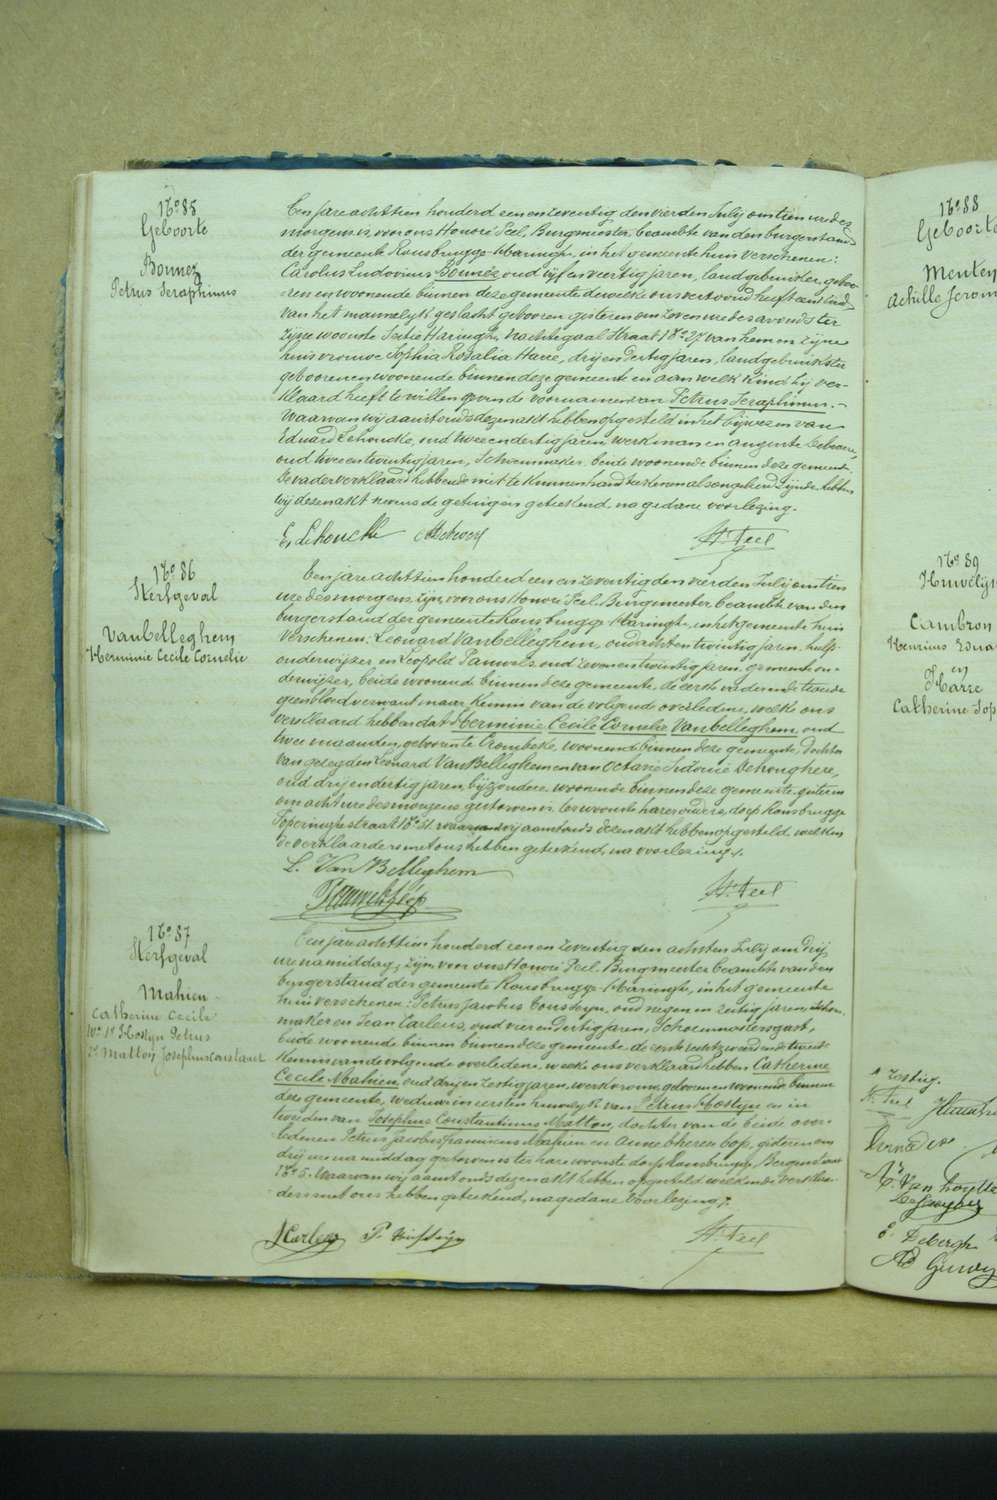 No. 85
Geboorte
Bonnez
Petrus Seraphinus
Een jare achttien honderd een en zeventig den vierden July om tien ure des
morgens, voor ons Honoré Feel, Burgmeester, beambte van den burgerstand
der gemeente Rousbrugge-Haringhe, in het gemeente huis verschenen:
Carolus Ludovicus Bonnez oud vyf en veertig jaren, landgebruiker, geboo-
ren en woonende binnen deze gemeente dewelke ons vertoond heeft een kind
van het mannelyk geslacht gebooren gisteren om zeven ure des avonds ter
zyne woonste Sectie Haringhe, nachtegaal straat No. 27 van hem en zyne
huisvrouwe Sophia Rosalia Haeve, dry en dertig jaren, landgebruikster
gebooren en woonende binnen deze gemeente en aan welk kind hy ver-
klaard heeft te willen geven de voornamen van Petrus Seraphinus.-
Waarvan wy aanstonds dezen akt hebben opgesteld in het bywezen van
Eduard Lehoucke, oud twee en dertig jaren, werkman en Auguste
oud twee en twintig jaren, Schoenmaker, beide woonende binnen deze gemeente.
De vader verklaard hebbende niet te kunnen handteekenen als ongeleerd zynde, hebben
wy dezen akt nevens de getuigen geteekend, na gedane voorlezing.
E. Lehoucke
H. Feel
No. 86
Sterfgeval
Vanbelleghem
Herminie Cecile Cornelie
Een jare achttien honderd een en zeventig den vierden July om tien
ure des morgens, zyn, voor ons Honoré Feel, Burgemeester, beambte van den
burgerstand der gemeente Rousbrugge Haringhe, in het gemeente huis
verschenen, Leonard Vanbelleghem, oud acht en twintig jaren, hulp-
onderwyzer en Leopold Pauwels, oud zeven en twintig jaren, gemeente on-
derwyzer, beide woonende binnen deze gemeente, de eerste vader en de tweede
geen bloedverwant maar kennis van de volgende overledene, welke ons
verklaard hebben dat Herminie Cecile Cornelie Vanbelleghem, oud
twee maanden, geboren te Crombeke, woonende binnen deze gemeente, dochter
van gezegden Leonard Van Belleghem en van Octavie Sidonie Dehonghere,
oud dry en dertig jaren, byzondere, woonende binnen deze gemeente, gisteren
om acht ure des morgens gestorven is ter woonste harer ouders, dorp Rousbrugge
Poperinghestraat No. 51. waarvan wy aanstonds dezen akt hebben opgesteld, welken
de verklaarders met ons hebben geteekend, na voorlezing.
L. Van Belleghem
Pauwels Leop
H. Feel
No. 87
Sterfgeval
Mahieu
Catherine Cecile
We. 1e. Hostyn Petrus
2e. Mattoy Josephus Constant
Een jare achttien honderd een en zeventig den achsten July om dry
ure namiddag, zyn, voor ons Honoré Feel, Burgmeester beambte van den
burgerstand der gemeente Rousbrugge-Haringhe, in het gemeente
huis verschenen: Petrus Jacobus Cousteyn, oud negen en zestig jaren, schoen-
maker en Jean Carleus, oud vier en dertig jaren, Schoenmakersgast,
beide woonende binnen deze gemeente, de eerste en de tweede
kennis van de volgende overledene, welke ons verklaard hebben Catherine
Cecile Mahieu, oud dry en zestig jaren, werkvrouw, geboren en woonende binnen
deze gemeente, weduwe in eersten huwelyk van Petrus Hostyn en in
tweeden van Josephus Constantinus Matton, dochter van de beide over-
ledenen Petrus Jacobus Franciscus Mahieu en Anne Therese Cop, gisteren om
dry ure namiddag gestorven is ter hare woonste dorp Rousbrugge, Bergenstraat
No. 5. Waarvan wy aanstonds dezen akt hebben opgesteld welken de verklaar-
ders met ons hebben geteekend, na gedane voorlezing.
J Carleus
H. Feel
No. 88
Geboorte
Mentey
Achille Jerom
No. 89
Huwelyk
Cambron
Henricus Edua
en
Harre
Catherine Sop
zestig.
H. Feel
C. Van
E. Debergh